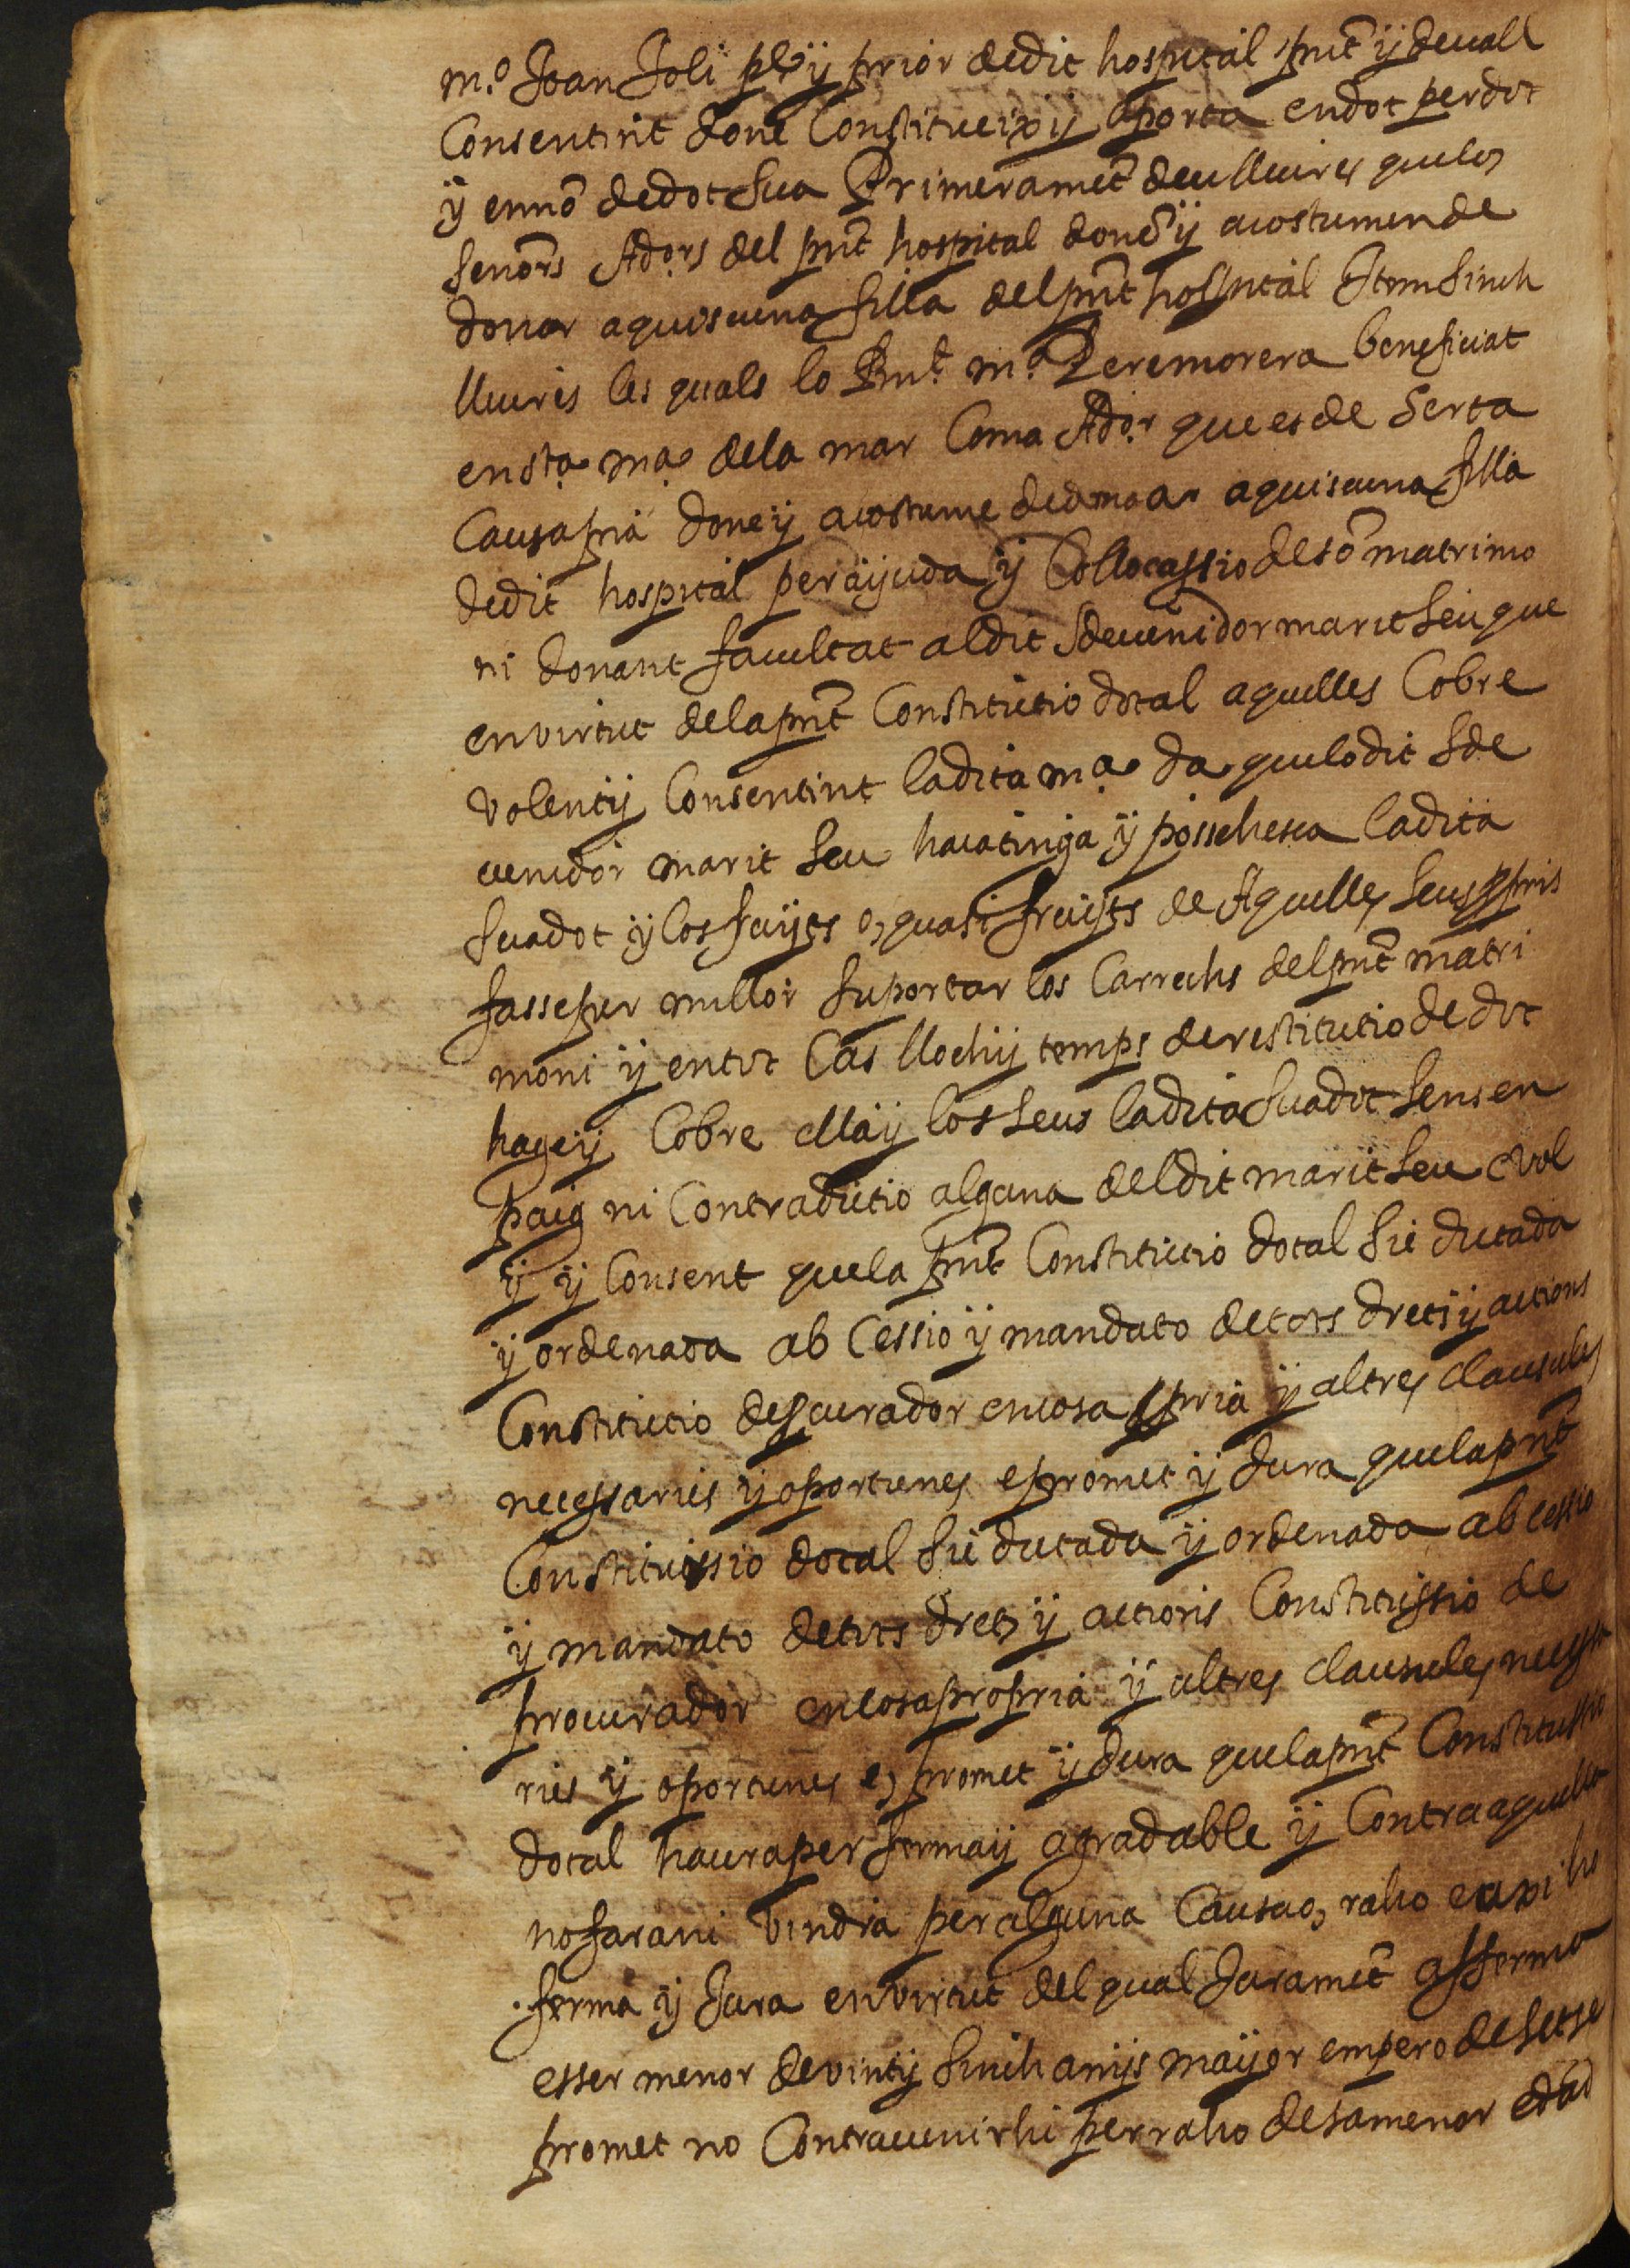 m.º Joan Joli p̃re ÿ prior dedit hospital pñt ÿ devall
Consentint done Constitueix ÿ aporta endot perdot
ÿ ennõ dedot sua Primeramẽt deu lliures quelos
senõrs Adõrs del pñt hospital donẽ ÿ acostumen de
donar aquiscuna filla del pñt hospital Item sinch
lliures les quals lo Rnt. mº. Peremorera beneficiat
ensta. ma. dela mar Coma Ador. que es de Serta
Causapia done ÿ acostume de donar aquiscuna filla
dedit hospital peraÿuda ÿ Collocassio desõ matrimo
ni donant facultat aldit sdevenidor marit seu que
envirtut delapñt Constitutio dotal aquelles Cobre
volent ÿ Consentint ladita ma. da. quelodit sde
venidor marit seu haiatinga ÿ possehesca ladita
suadot ÿ los fruÿts o, quasi fruÿts de Aquelles seus ppris
fasseper millor suportar los Carrechs delpñt matri
moni ÿ entot Cas lloch ÿ temps derestitutio de dot
hage ÿ Cobre ella ÿ los seus ladita suadot sens en
paig ni Contradictio alguna deldit marit seu e vol
ÿ ÿ Consent quela pñt Constitutio dotal sie dictada
ÿ ordenada ab Cessio ÿ mandato detots drets ÿ actions
Constitutio deprocurador encosa ppria ÿ altres clausules
necessaries ÿ oportunes e promet ÿ Jura quelapñt
Constitutissio dotal sie dictada ÿ ordenada ab cessio
ÿ mandato detots drets ÿ actions Constitutissio de
procurador encosapropria ÿ altres clausules necessa
ries ÿ oportunes e, promet ÿ Jura quelapñt Constitussio
dotal hauraper ferma ÿ agradable ÿ Contraaquella
nofarani vindra peralguna Causao, raho e axi ho
ferma ÿ Jura envirtut del qual Juramẽt afferma
esser menor devint ÿ sinch anÿs maÿor empero desetse
promet no Contravenirhi perraho desamenor edad